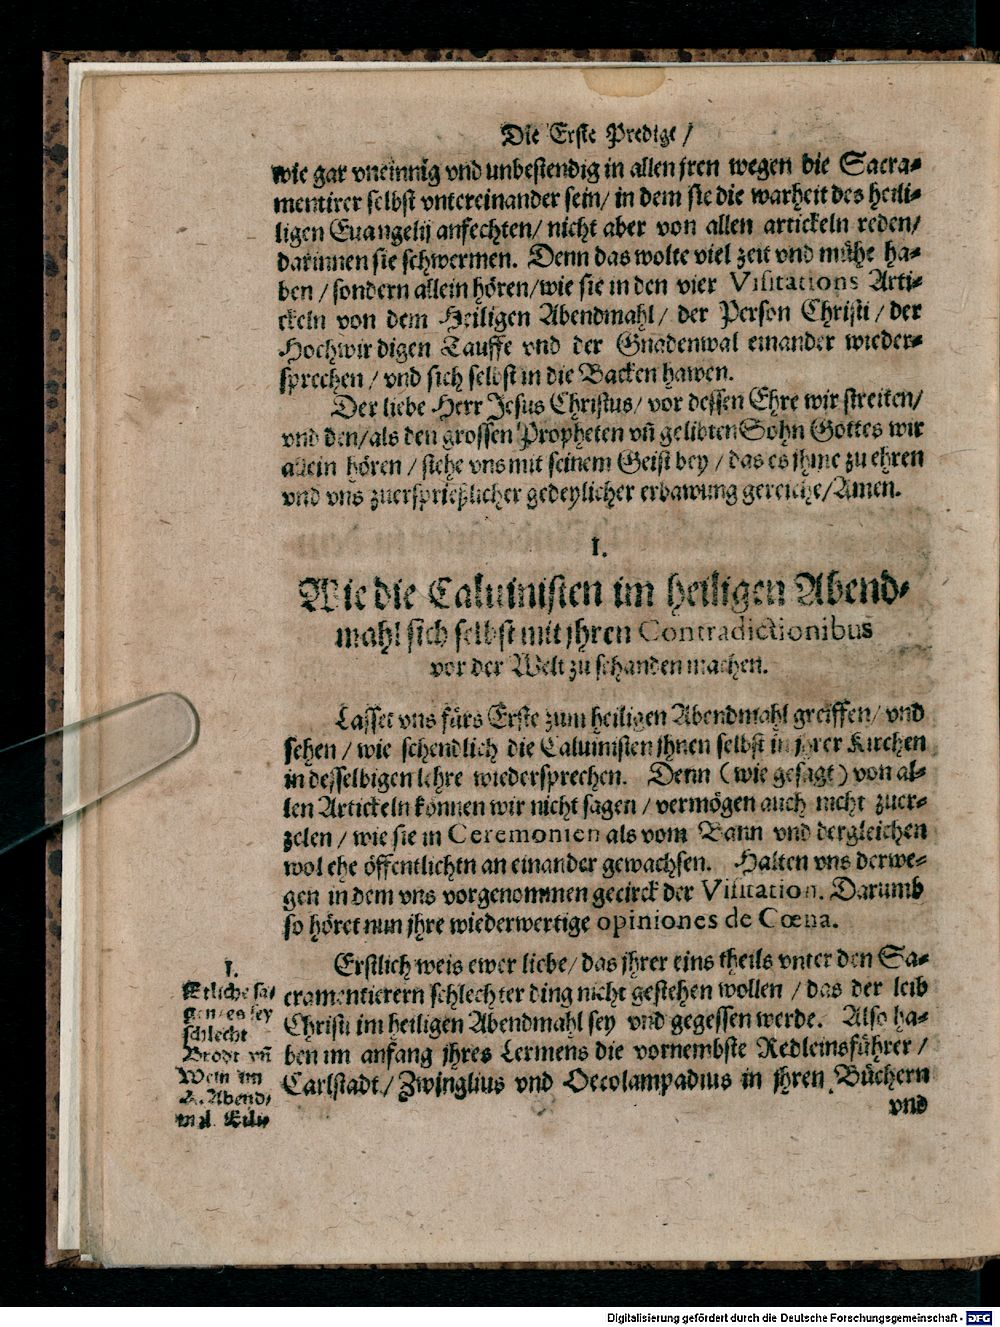 Die Erste Predigt /
wie gar vneinnig vnd unbestendig in allen jren wegen die Sacra-
mentirer selbst vntereinander sein / in dem sie die warheit des heili-
ligen Euangelij anfechten / nicht aber von allen artickeln reden /
darinnen sie schwermen. Denn das wolte viel zeit vnd mühe ha-
ben / sondern allein hören / wie sie in den vier Visitations Arti-
ckeln von dem Heiligen Abendmahl / der Person Christi / der
Hochwirdigen Tauffe vnd der Gnadenwal einander wieder-
sprechen / vnd sich selbst in die Backen hawen.
Der liebe Herr Jesus Christus / vor dessen Ehre wir streiten /
vnd den / als den grossen Propheten vñ gelibten Sohn Gottes wir
allein hören / stehe vns mit seinem Geist bey / das es jhme zu ehren
vnd vns zuersprießlicher gedeylicher erbawung gereiche / Amen.
I.
Wie die Caluinisten im heiligen Abend-
mahl sich selbst mit jhren Contradictionibus
vor der Welt zu schanden machen.
Lasset vns fürs Erste zum heiligen Abendmahl greiffen / vnd
sehen / wie schendlich die Caluinisten jhnen selbst in jhrer Kirchen
in desselbigen lehre wiedersprechen. Denn (wie gesagt) von al-
len Artickeln können wir nicht sagen / vermögen auch nicht zuer-
zelen / wie sie in Ceremonien als vom Bann vnd dergleichen
wol ehe öffentlichtn an einander gewachsen. Halten vns derwe-
gen in dem vns vorgenommen gecirck der Visitation. Darumb
so höret nun jhre wiederwertige opiniones de Cœna.
Erstlich weis ewer liebe / das jhrer eins theils vnter den Sa-
cramentierern schlechter ding nicht gestehen wollen / das der leib
Christi im heiligen Abendmahl sey vnd gegessen werde. Also ha-
ben im anfang jhres Lermens die vornembste Redleinsführer /
Carlstadt / Zwinglius vnd Oecolampadius in jhren Büchern
vnd
I.
Etliche sa-
gen / es sey
schlecht
Brodt vñ
Wein im
H. Abend-
mal.